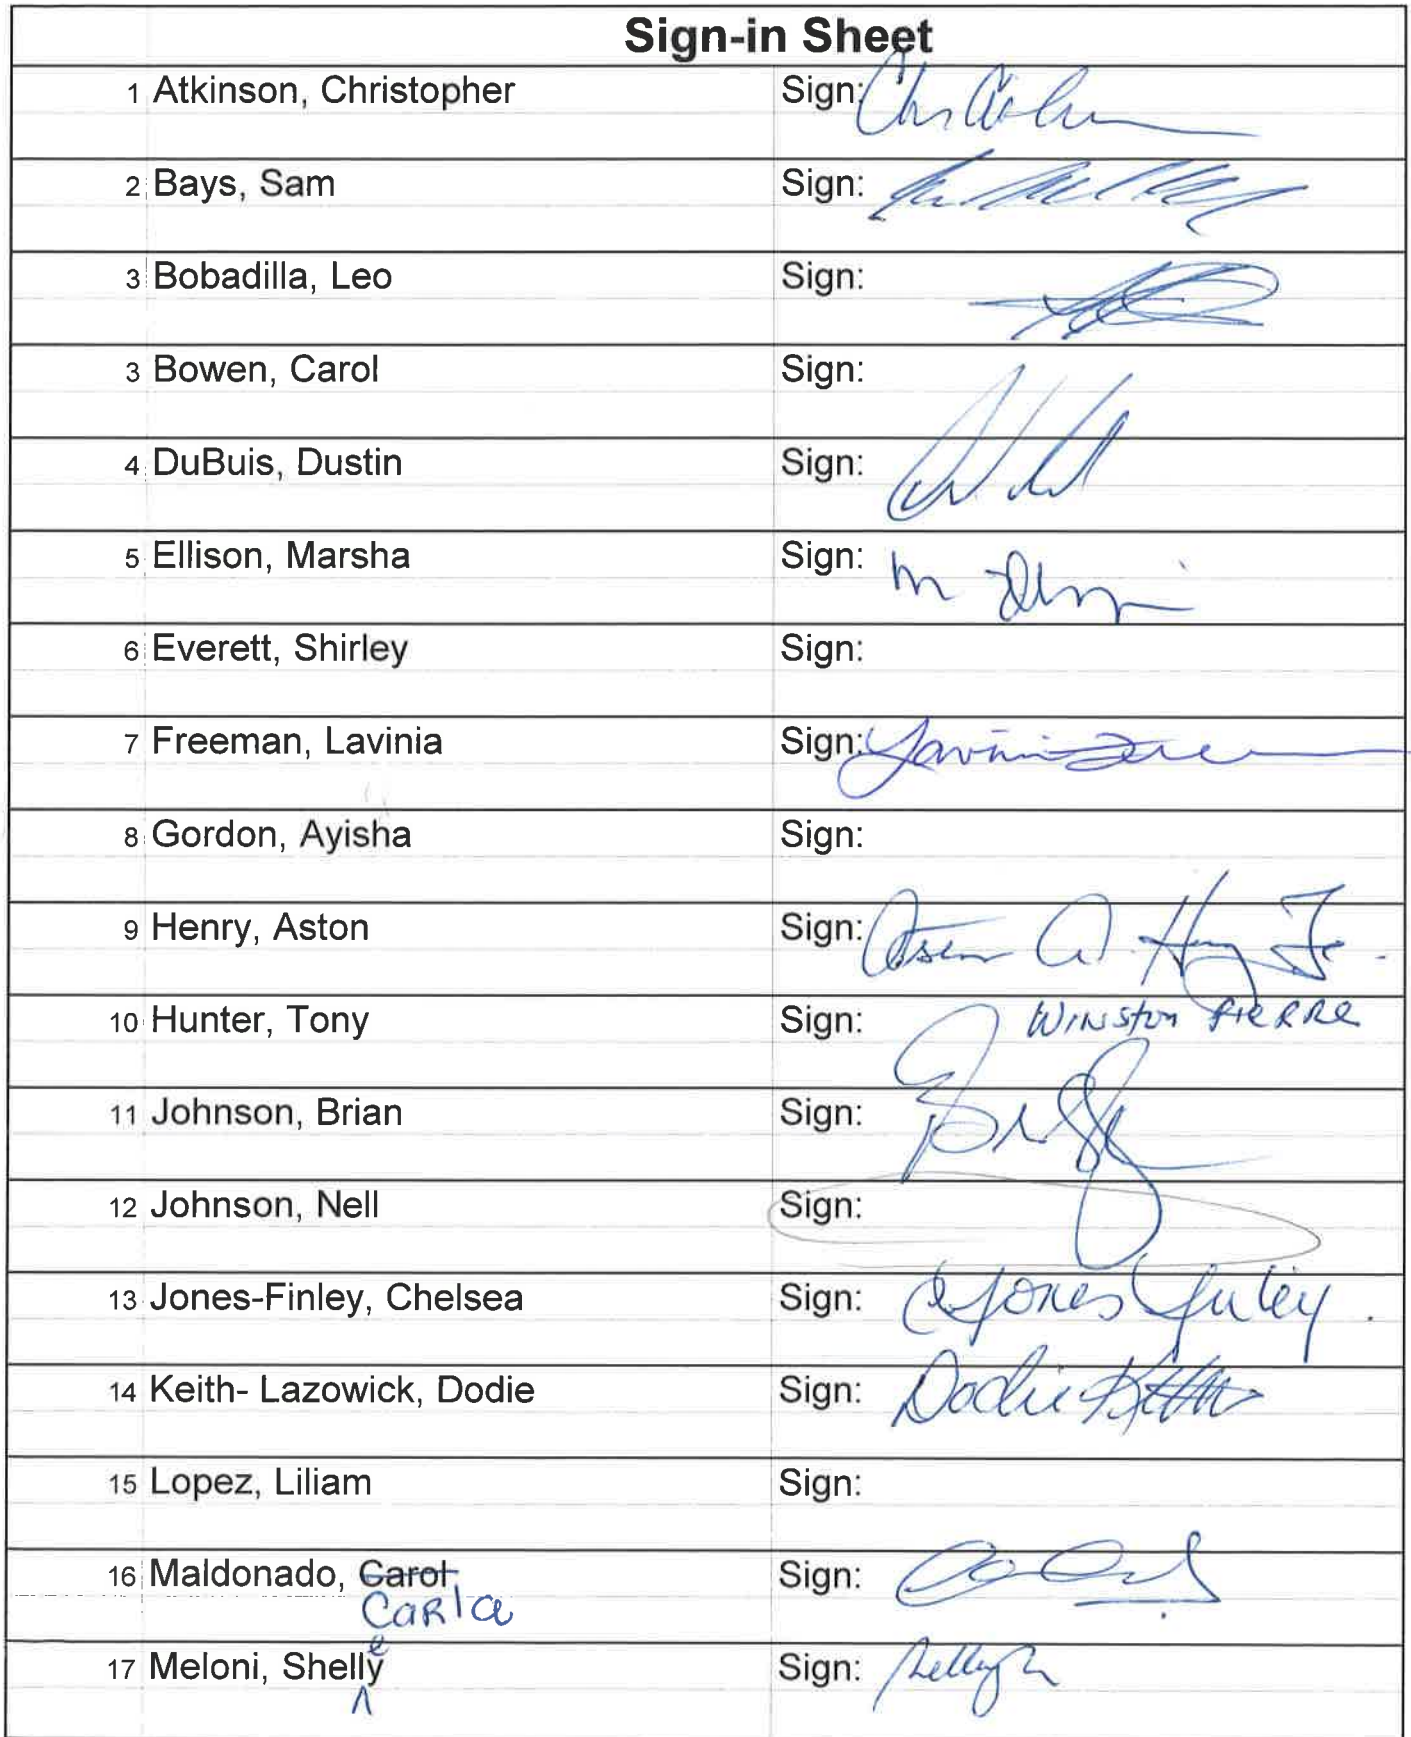 Sign-in Sheet
1 Atkinson, Christopher Sign:
2 Bays, Sam Sign:
3 Bobadilla, Leo Sign:
3 Bowen, Carol Sign:
4 DuBuis, Dustin Sign:
5 Ellison, Marsha Sign: M
6 Everett, Shirley Sign:
7 Freeman, Lavinia Sign: Lavinia
8 Gordon, Ayisha Sign:
9 Henry, Aston Sign: Aston A. Henry Jr.
10 Hunter, Tony Sign: Winston Pierre
11 Johnson, Brian Sign:
12 Johnson, Nell Sign:
13 Jones-Finley, Chelsea Sign: C Jones Finley.
14 Keith- Lazowick, Dodie Sign: Dodie
15 Lopez, Liliam Sign:
16 Maldonado, Carol Sign:
Carla
e
17 Meloni, Shelly Sign: